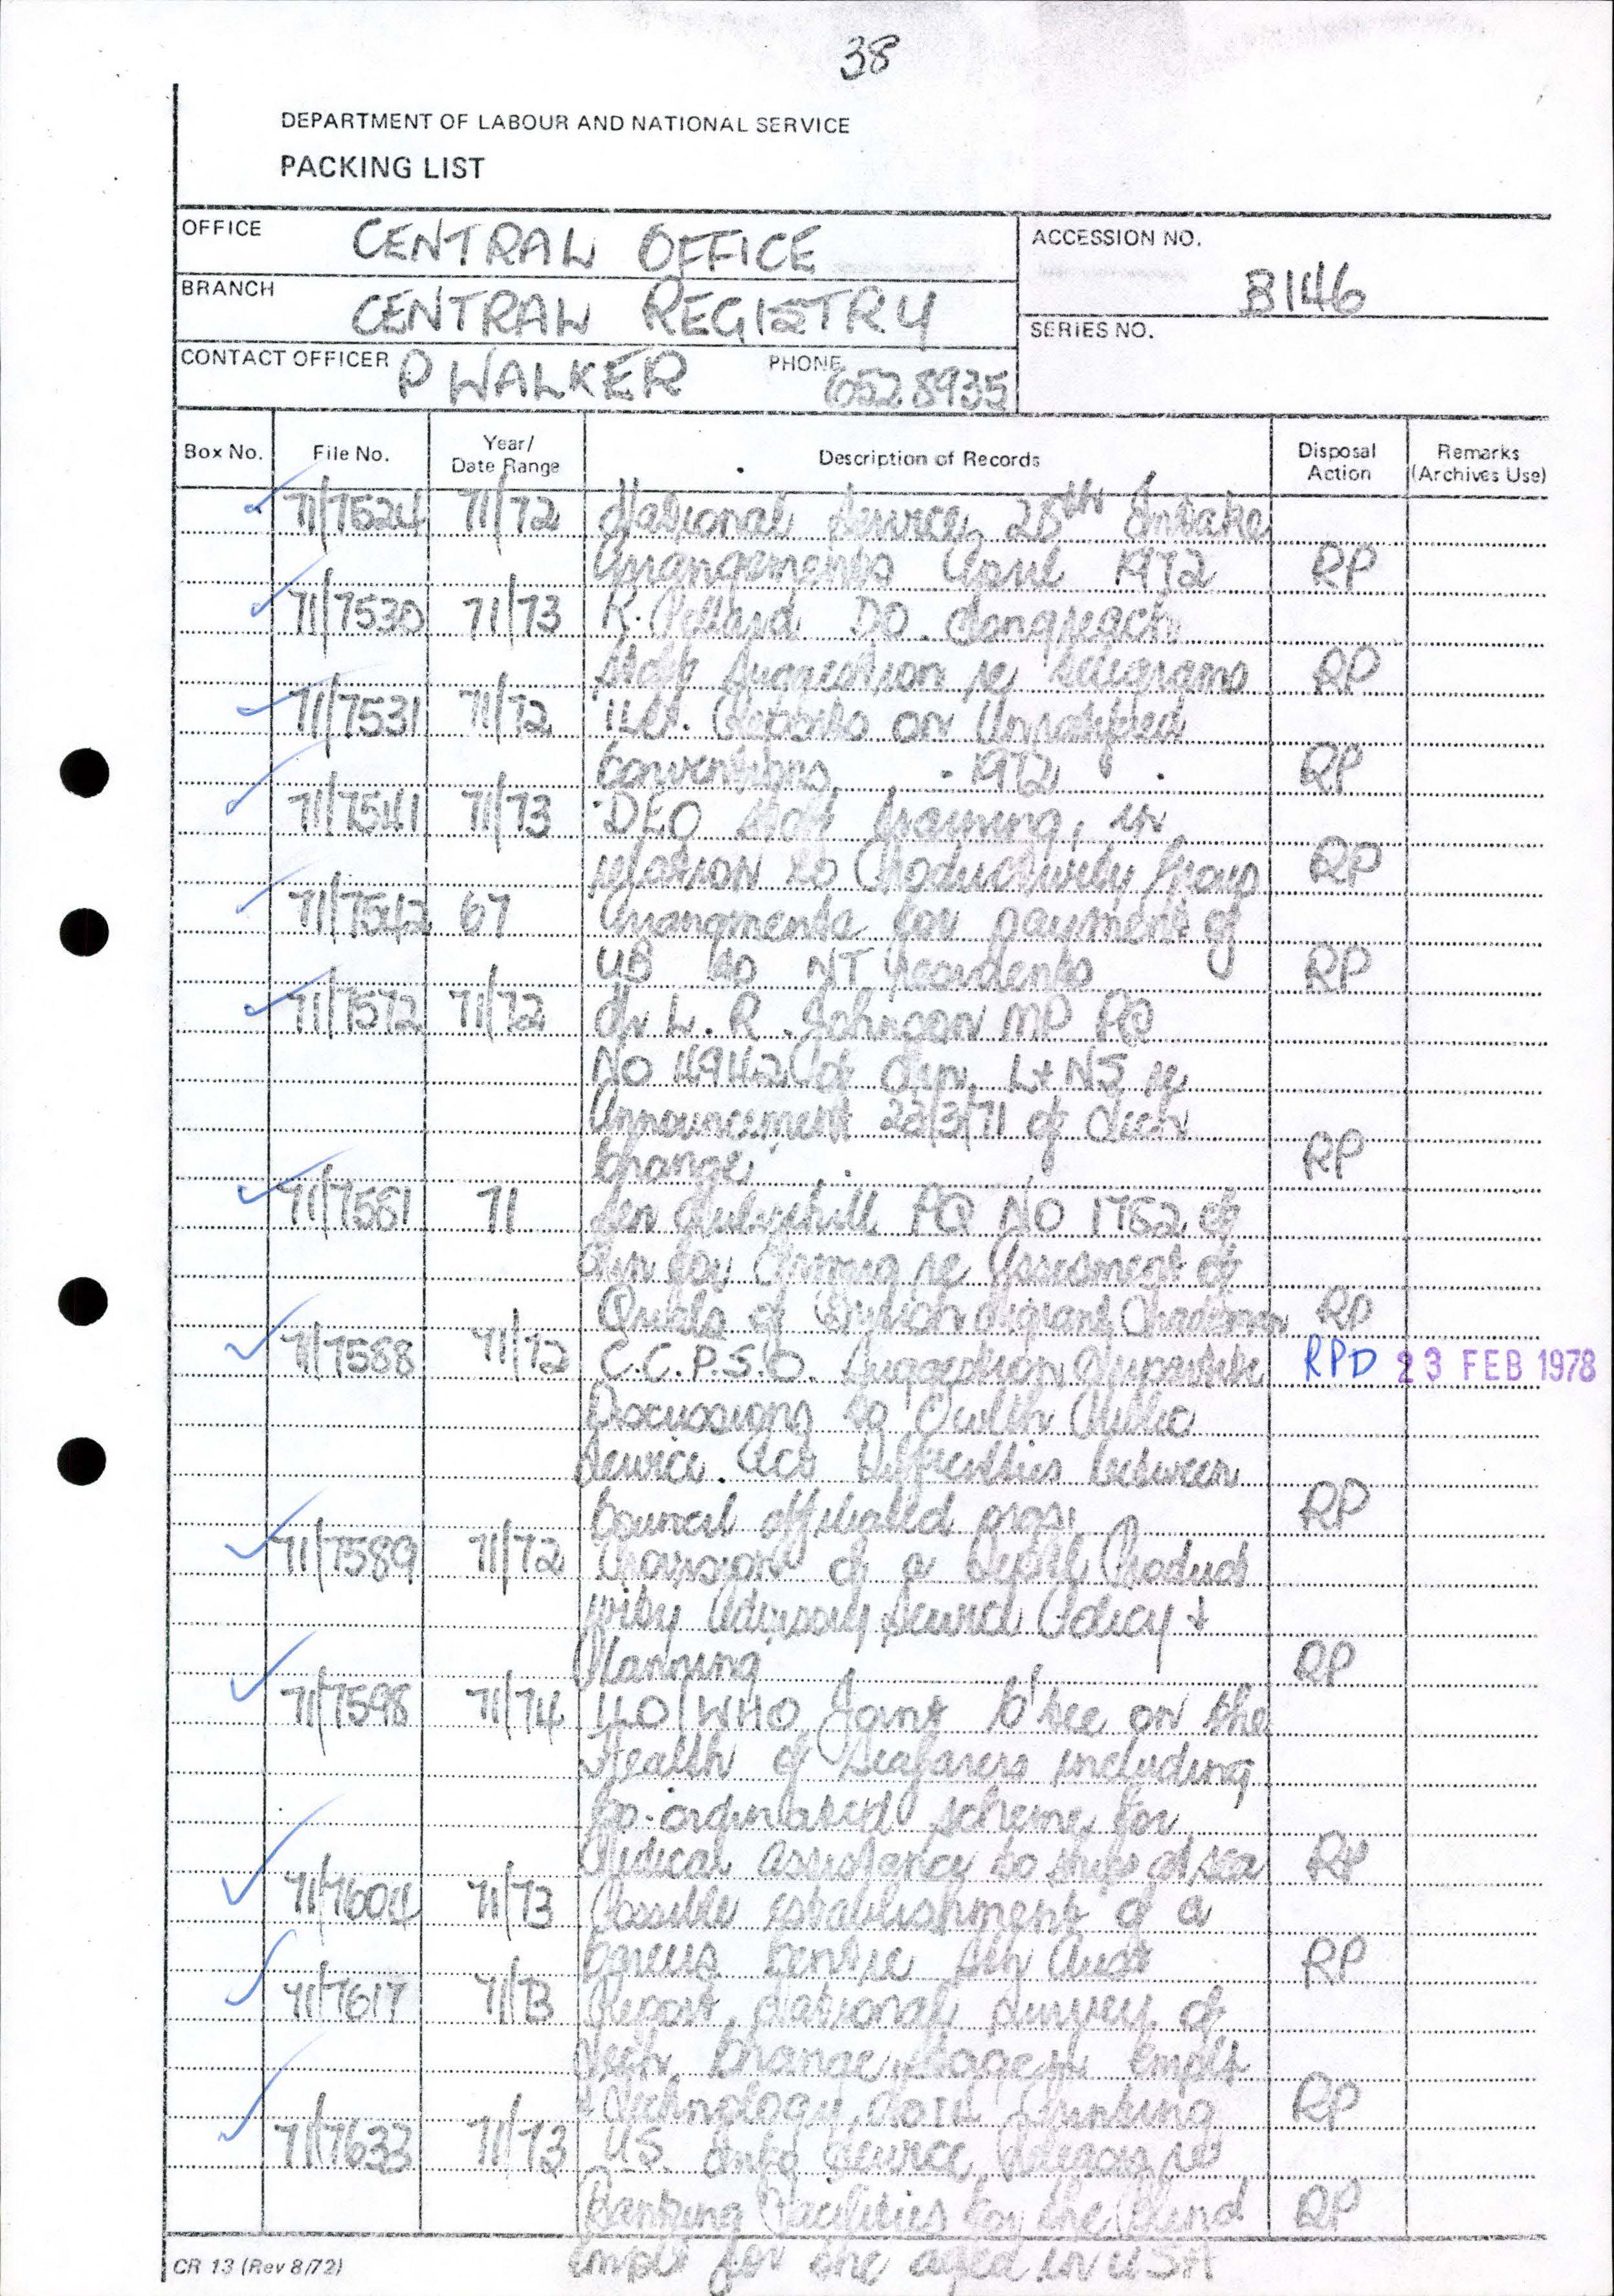 38
DEPARTMENT OF LABOUR AND NATIONAL SERVICE
PACKING LIST
OFFICE CENTRAL OFFICE
ACCESSION NO. B146
BRANCH CENTRAL REGISTRY
SERIES NO.
CONTACT OFFICER P WALKER PHONE 6528935
Box No. File No. Year/ Date Range Description of Records Disposal Action Remarks (Archives Use)
71/7524 71/72 National Service 28th Intake
Arrangements April 1972 RP
71/7530 71/73 K. Pollard DO Longreach
Staff Suggestion re telegrams RP
71/7531 71/72 ILO. Reports on Unratified
Conventions - 1972 RP
71/7541 71/73 DEO Staff training, in
relation to Productivity Group RP
71/7542 67 Arrangments for payment of
UB to NT residents RP
71/7572 71/72 Mr L. R. Johnson MP PQ
No 4942 of Min. L+NS re
Announcement 22/3/71 of Tech
Change RP
71/7581 71 Sen Mulvihill PQ NO 1762 of
Min for Immig re Assesment of
Quals of British Migrant Tradesmen RP
71/7588 71/72 C.C.P.S.O. Suggestion RPD 23 FEB 1978
Discussions to C'wlth Public
Service Act Difficulties between
Council affiliated orgs. RP
71/7589 71/72 Provision of a Deptl Product
ivity Advisory Service Policy +
Planning RP
71/7598 71/74 ILO/WHO Joint C'tee on the
Health of Seafarers including
Co-ordinated scheme for
Medical Assistance to ships at sea RP
71/7604 71/73 Possible establishment of a
Careers Centre Sth Aust RP
71/7617 71/73 Report National Survey of
Tech Change Stage Emplt
+ Technology RP
71/7633 71/73 U.S. Info Service re
Banking Facilities for the Blind RP
Emplt for the aged in USA
CR 13 (Rev 8/72)